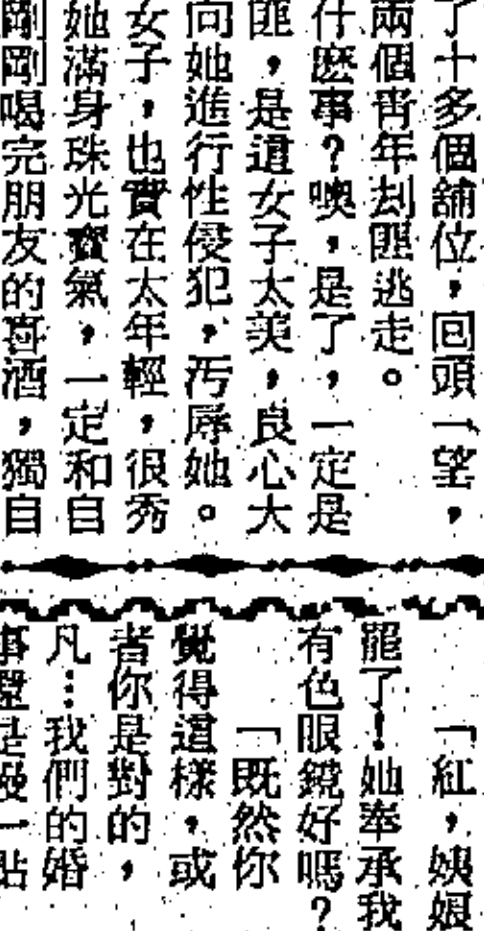 了十多個舖位，回頭一望，
兩個青年刦匪逃走。
什麽事？噢，是了，一定是
匪，是這女子太美，良心大
向她進行性侵犯，汚辱她。
女子，也實在太年輕，很秀
她滿身珠光寶氣，一定和自
剛剛喝完朋友的喜酒，獨自
「紅，姨娘
罷了！她奉承我
有色眼鏡好嗎？
「既然你
覺得這樣，或
者你是對的，
凡…我們的婚
事還是慢一點